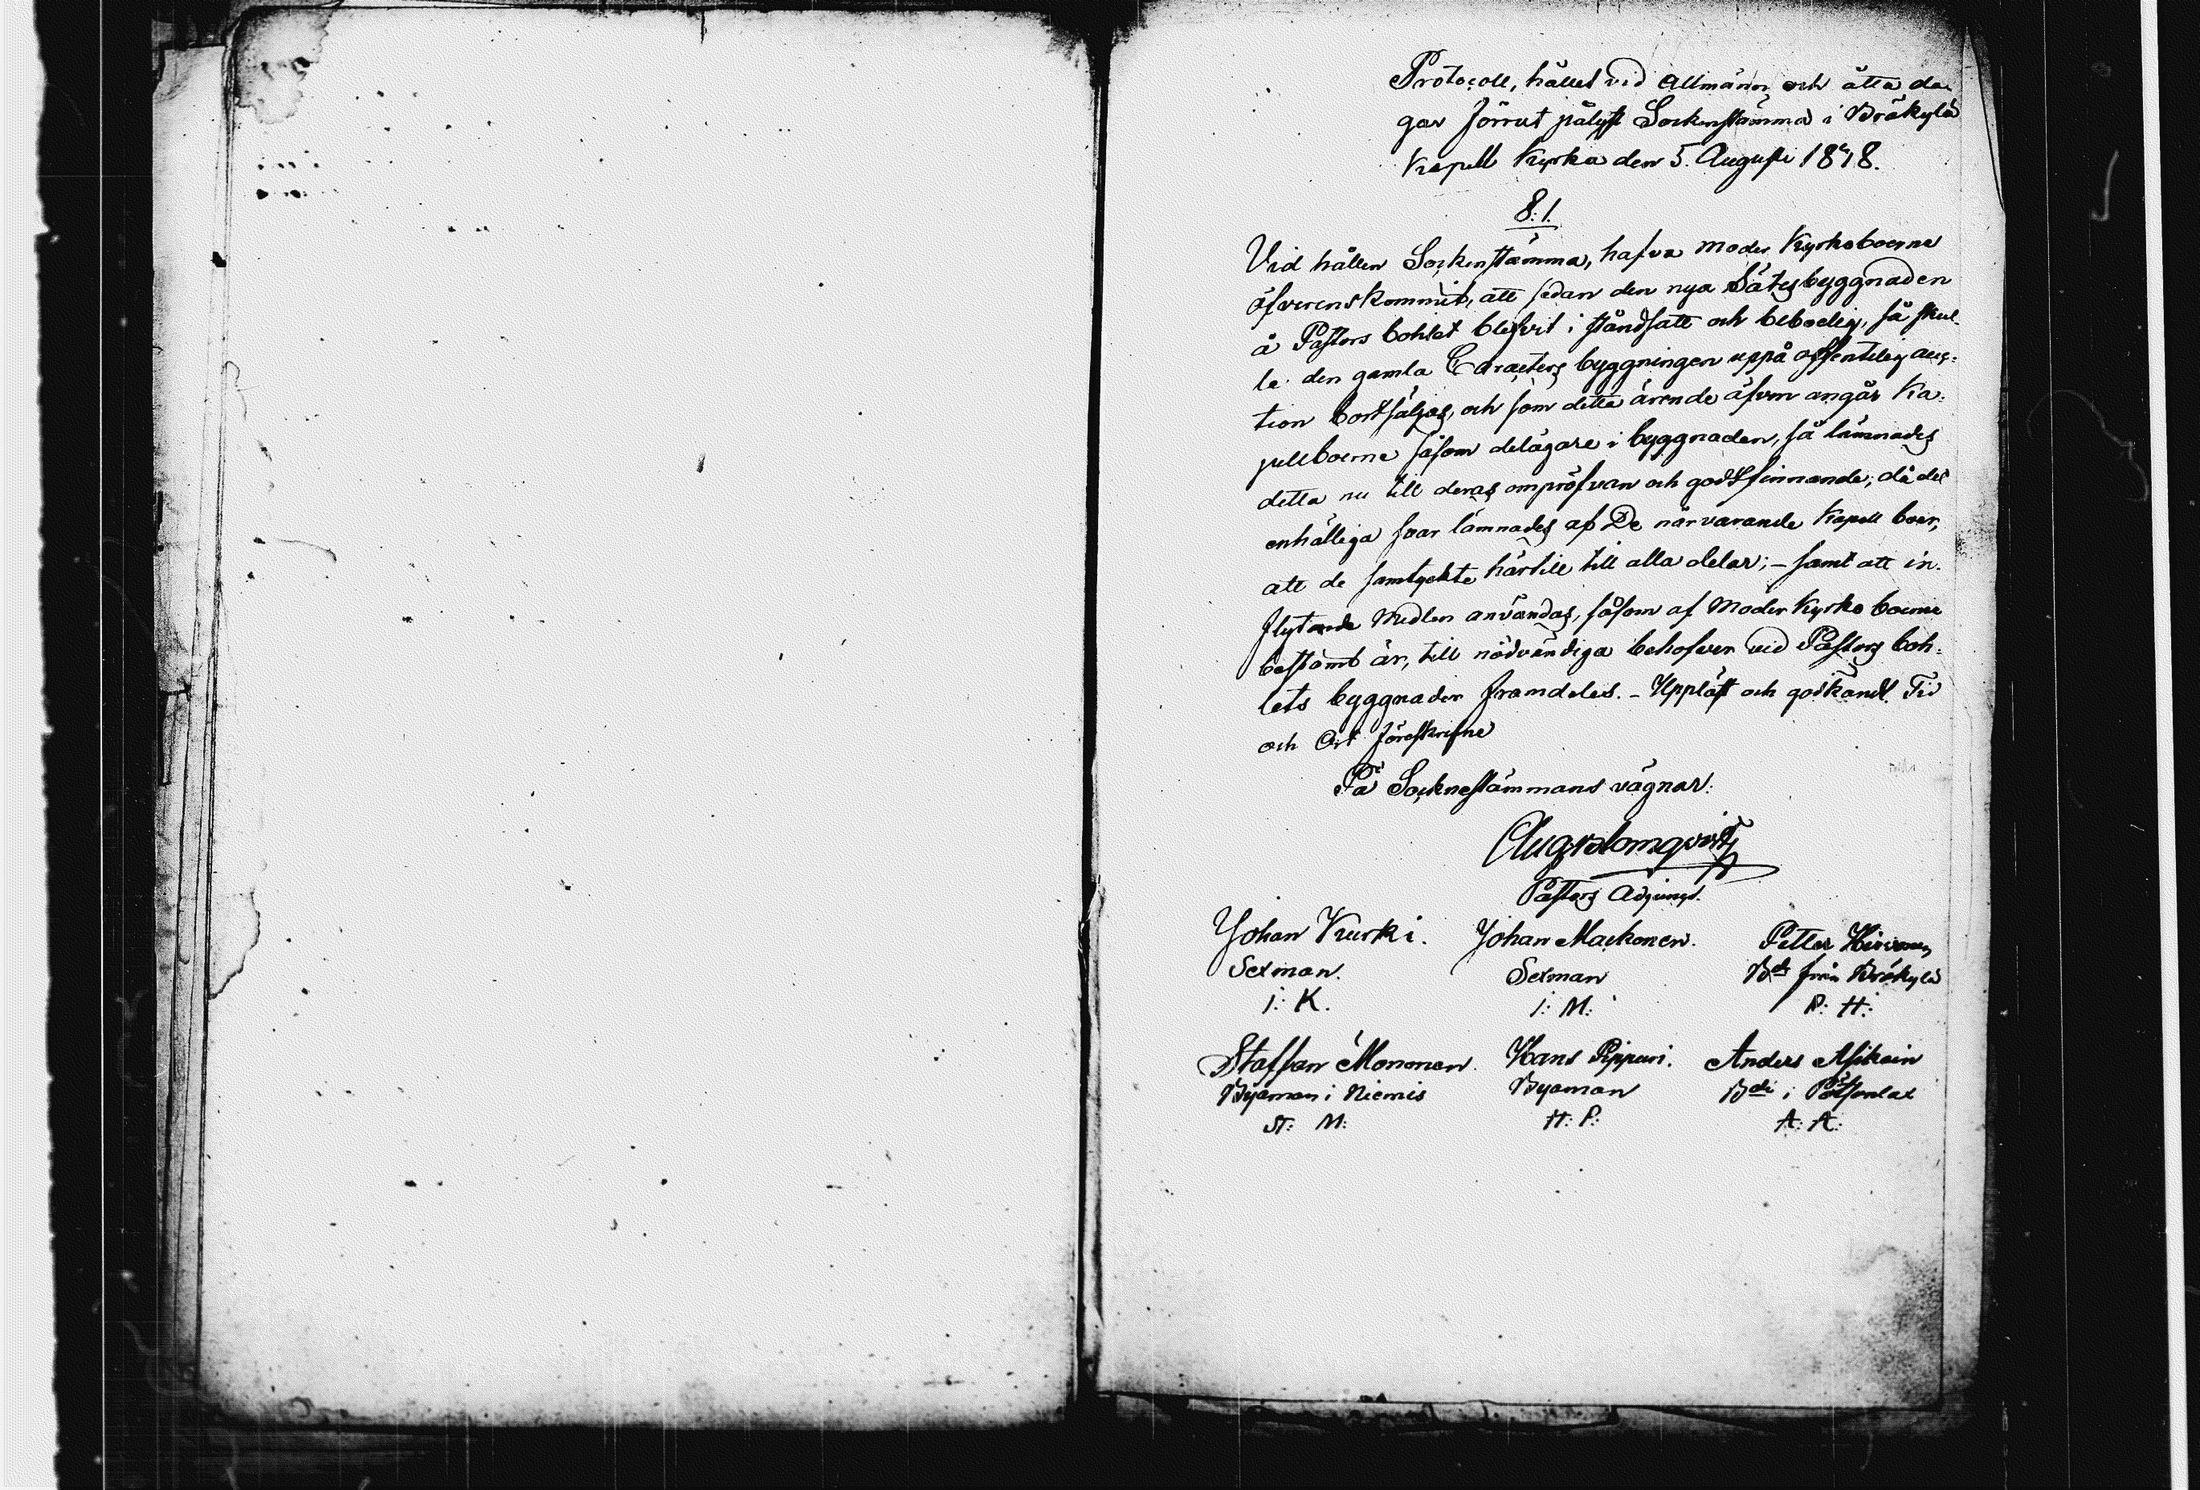 Protocoll, hållet vid Allmänn och åtta da-
gar förrut pålyst Sockenstämma i Bråkylä
Kapell Kyrka den 5. Augusti 1848.
§. 1.
Vid hållen Sockenstämma, hafva moder Kyrkoboerne
öfverenskommit, att sedan den nya Sätesbyggnaden
å Pastors bohlet blefvit i ståndsatt och beboelig, så skul-
le den gamla Caracters byggningen uppå offentelig auc-
tion bortsäljas, och som detta ärende äfven angår Ka-
pellboerne såsom delägare i byggnaden, så lämnades
detta nu till deras ompröfvan och godtfinnande; då det
enhälliga svar lämnades af De närvarande Kapell boer,
att de samtyckte härtill till alla delar; – samt att in-
flytande Medlen användas, såsom af Moder Kyrko boerne
bestämt är, till nödvändiga behofver vid Pastors boh-
lets byggnader framdeles. – Uppläst och godkändt. Tid
och Ort föreskrifne
På Socknestämmans vägnar:
Aug Blomqvist
Pastors Adjunct.
Johan Kurki. Johan Mackonen. Petter Hirvonen
Sexman. Sexman Bde från Bråkylä
J: K. J: M: P: H:
Staffan Mononen. Hans Pippuri. Anders Asikain
Byaman i Niemis Byaman Bde i
St: M: H: P: A: A: